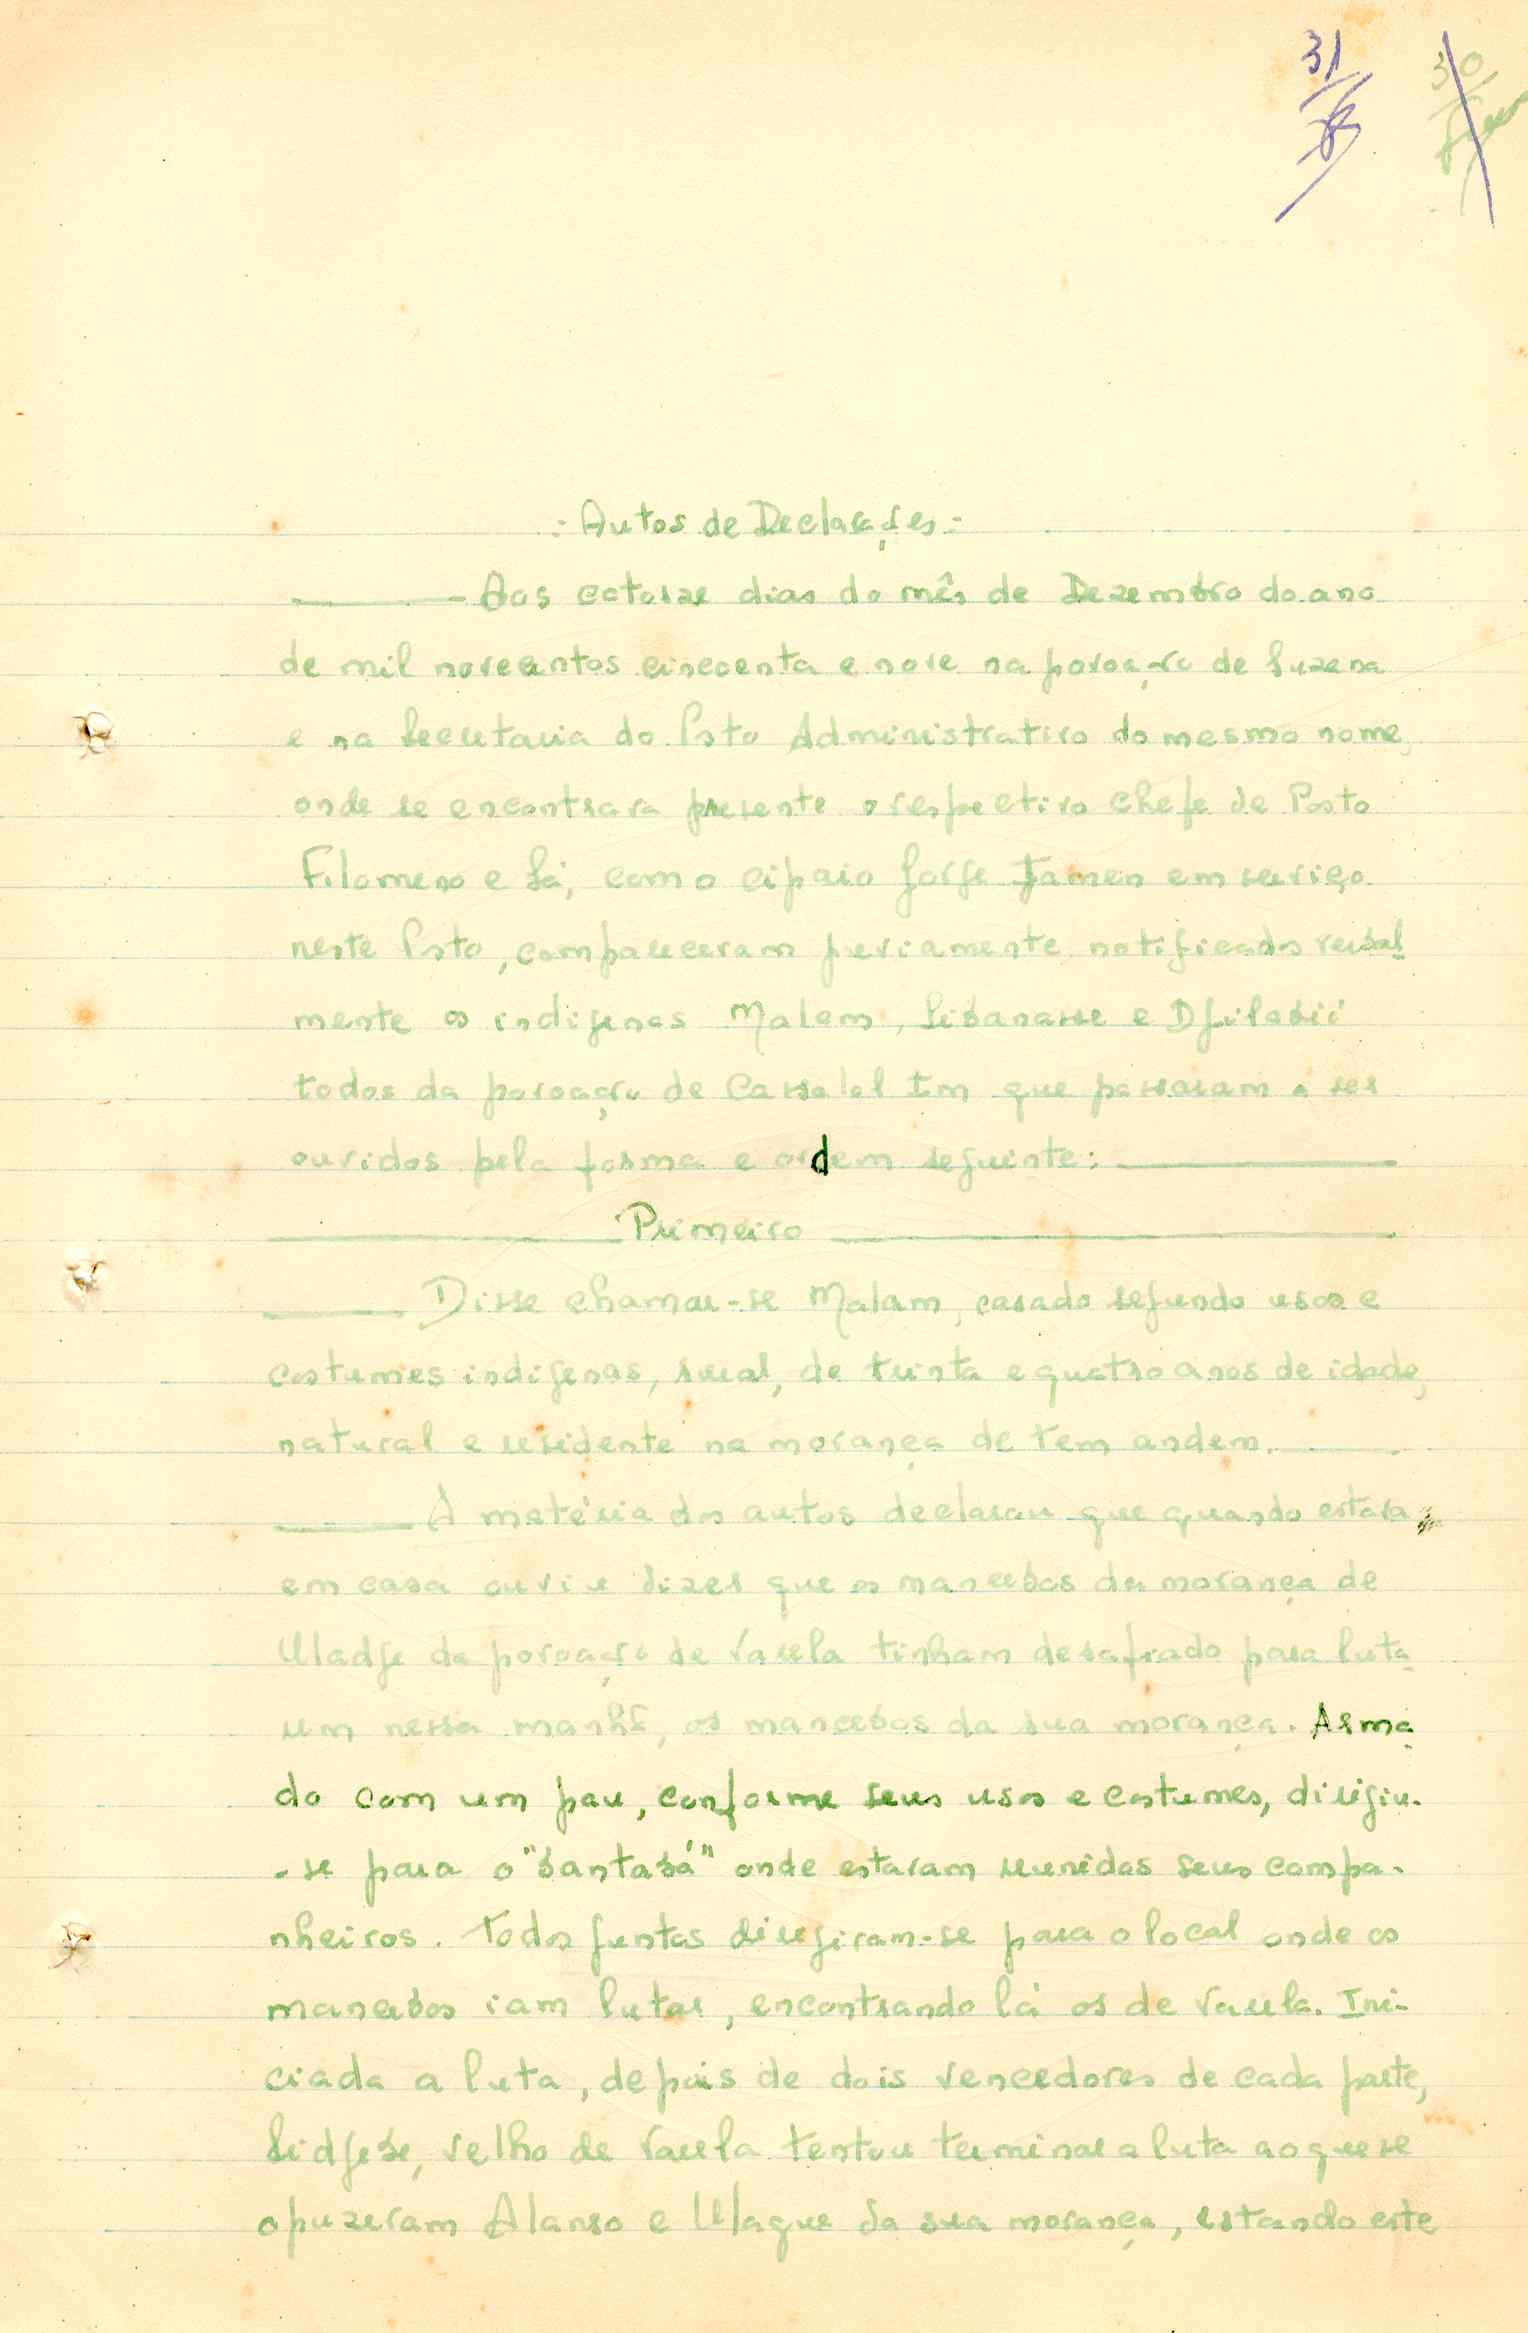 31
30
: Autos de Declarações :
Aos catorze dias do mês de Dezembro do ano
de mil novecentos cincoenta e nove na povoação de Suzana
e na Secretaria do Posto Administrativo do mesmo nome,
onde se encontrava presente o respectivo Chefe de Posto
Filomeno e Sá, com o cipaio Jorge Jamen em serviço
neste Posto, compareceram previamente notificados verbal-
mente os indigenas Malam, Sibanasse e Djilabii
todos da povoação de Cassalol Em que passaram a ser
ouvidos pela forma e ordem seguinte:
Primeiro
Disse chamar-se Malam, casado segundo usos e
costumes indigenas, rural, de trinta e quatro anos de idade,
natural e residente na morança de tem andem.
A matéria dos autos declarou que quando estava
em casa ouviu dizer que os mancebos da morança de
Uladje da povoação de Varela tinham desafiado para luta
um nessa manhã, os mancebos da sua morança. Arma-
do com um pau, conforme seus usos e costumes, dirigiu-
-se para o "bantabá" onde estavam reunidos seus compa-
nheiros. Todos juntos dirigiram-se para o local onde os
mancebos iam lutar, encontrando lá os de Varela. Ini-
ciada a luta, depois de dois vencedores de cada parte,
Sidjebe, velho de Varela tentou terminar a luta ao que se
opuzeram Alanso e Ulaque da sua morança, estando este